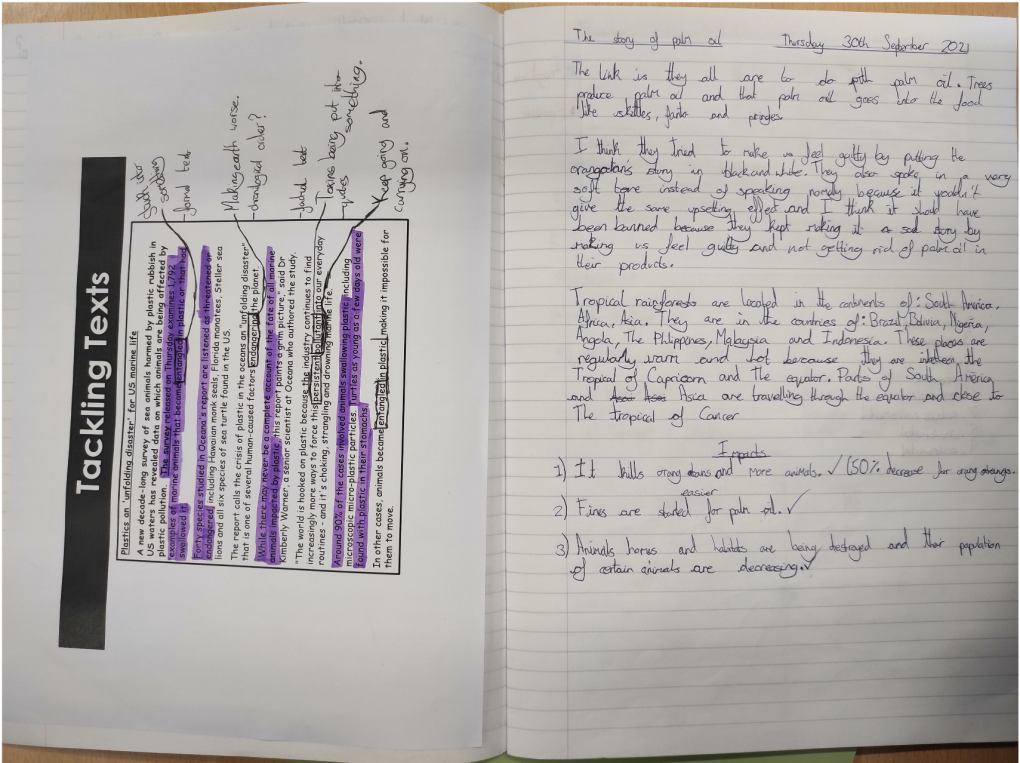 Tackling Texts
Plastics an 'unfolding disaster' for US marine life
A new decade-long survey of sea animals harmed by plastic rubbish in
US waters has revealed data on which animals are being affected by
plastic pollution. The survey released on Thursday examines 1,792
"examples of marine animals that become entangled in plastic or that had
swallowed it.
Forty species studied in Oceana's report are listened as threatened or
endangered, including Hawaiian monk seals, Florida manatees, Steller sea
lions and all six species of sea turtle found in the US.
The report calls the crisis of plastic in the oceans an "unfolding disaster"
that is one of several human-caused factors endangering the planet.
"While there may never be a complete account of the fate of all marine
animals impacted by plastic, this report paints a grim picture," said Dr
Kimberly Warner, a senior scientist at Oceana who authored the study.
"The world is hooked on plastic because the industry continues to find
increasingly more ways to force this persistent pollutant into our everyday
routines - and it's choking, strangling and drowning marine life.
Around 90% of the cases involved animals swallowing plastic, including
microscopic micro-plastic particles. Turtles as young as a few days old were
found with plastic in their stomachs.
In other cases, animals became entangled in plastic, making it impossible for
them to move.
Stuck into
something
formal text
Making earth worse.
-chronological order?
-factual text
Toxins being put into
something.
-quotes
Keep going and
carrying on.
The story of palm oil Thursday 30th September 2021
The link is they all are to do with palm oil. Trees
produce palm oil and that palm oil goes into the food
like skittles, fanta and pringles.
I think they tried to make us feel guilty by putting the
orangatan's story in black and white. They also spoke in a very
soft tone instead of speaking normaly because it wouldn't
give the same upsetting effect and I think it should have
been banned because they kept making it a sad story by
making us feel guilty and not getting rid of palm oil in
their products.
Tropical rainforests are located in the continents of: South America,
Africa, Asia. They are in the countries of: Brazil, Bolivia, Nigeria,
Angola, The Philippines, Malaysia and Indonesia. These places are
regularly warm and hot because they are inbetween the
Tropical of Capricorn and The equator. Parts of South America
and Asia are travelling through the equator and close to
The tropical of Cancer
Impacts
1) It kills orang utans and more animals. ✓ (50% decrease for orang utangs.
easier
2) Fires are started for palm oil. ✓
3) Animals homes and habitats are being destroyed and their population
of certain animals are decreasing. ✓